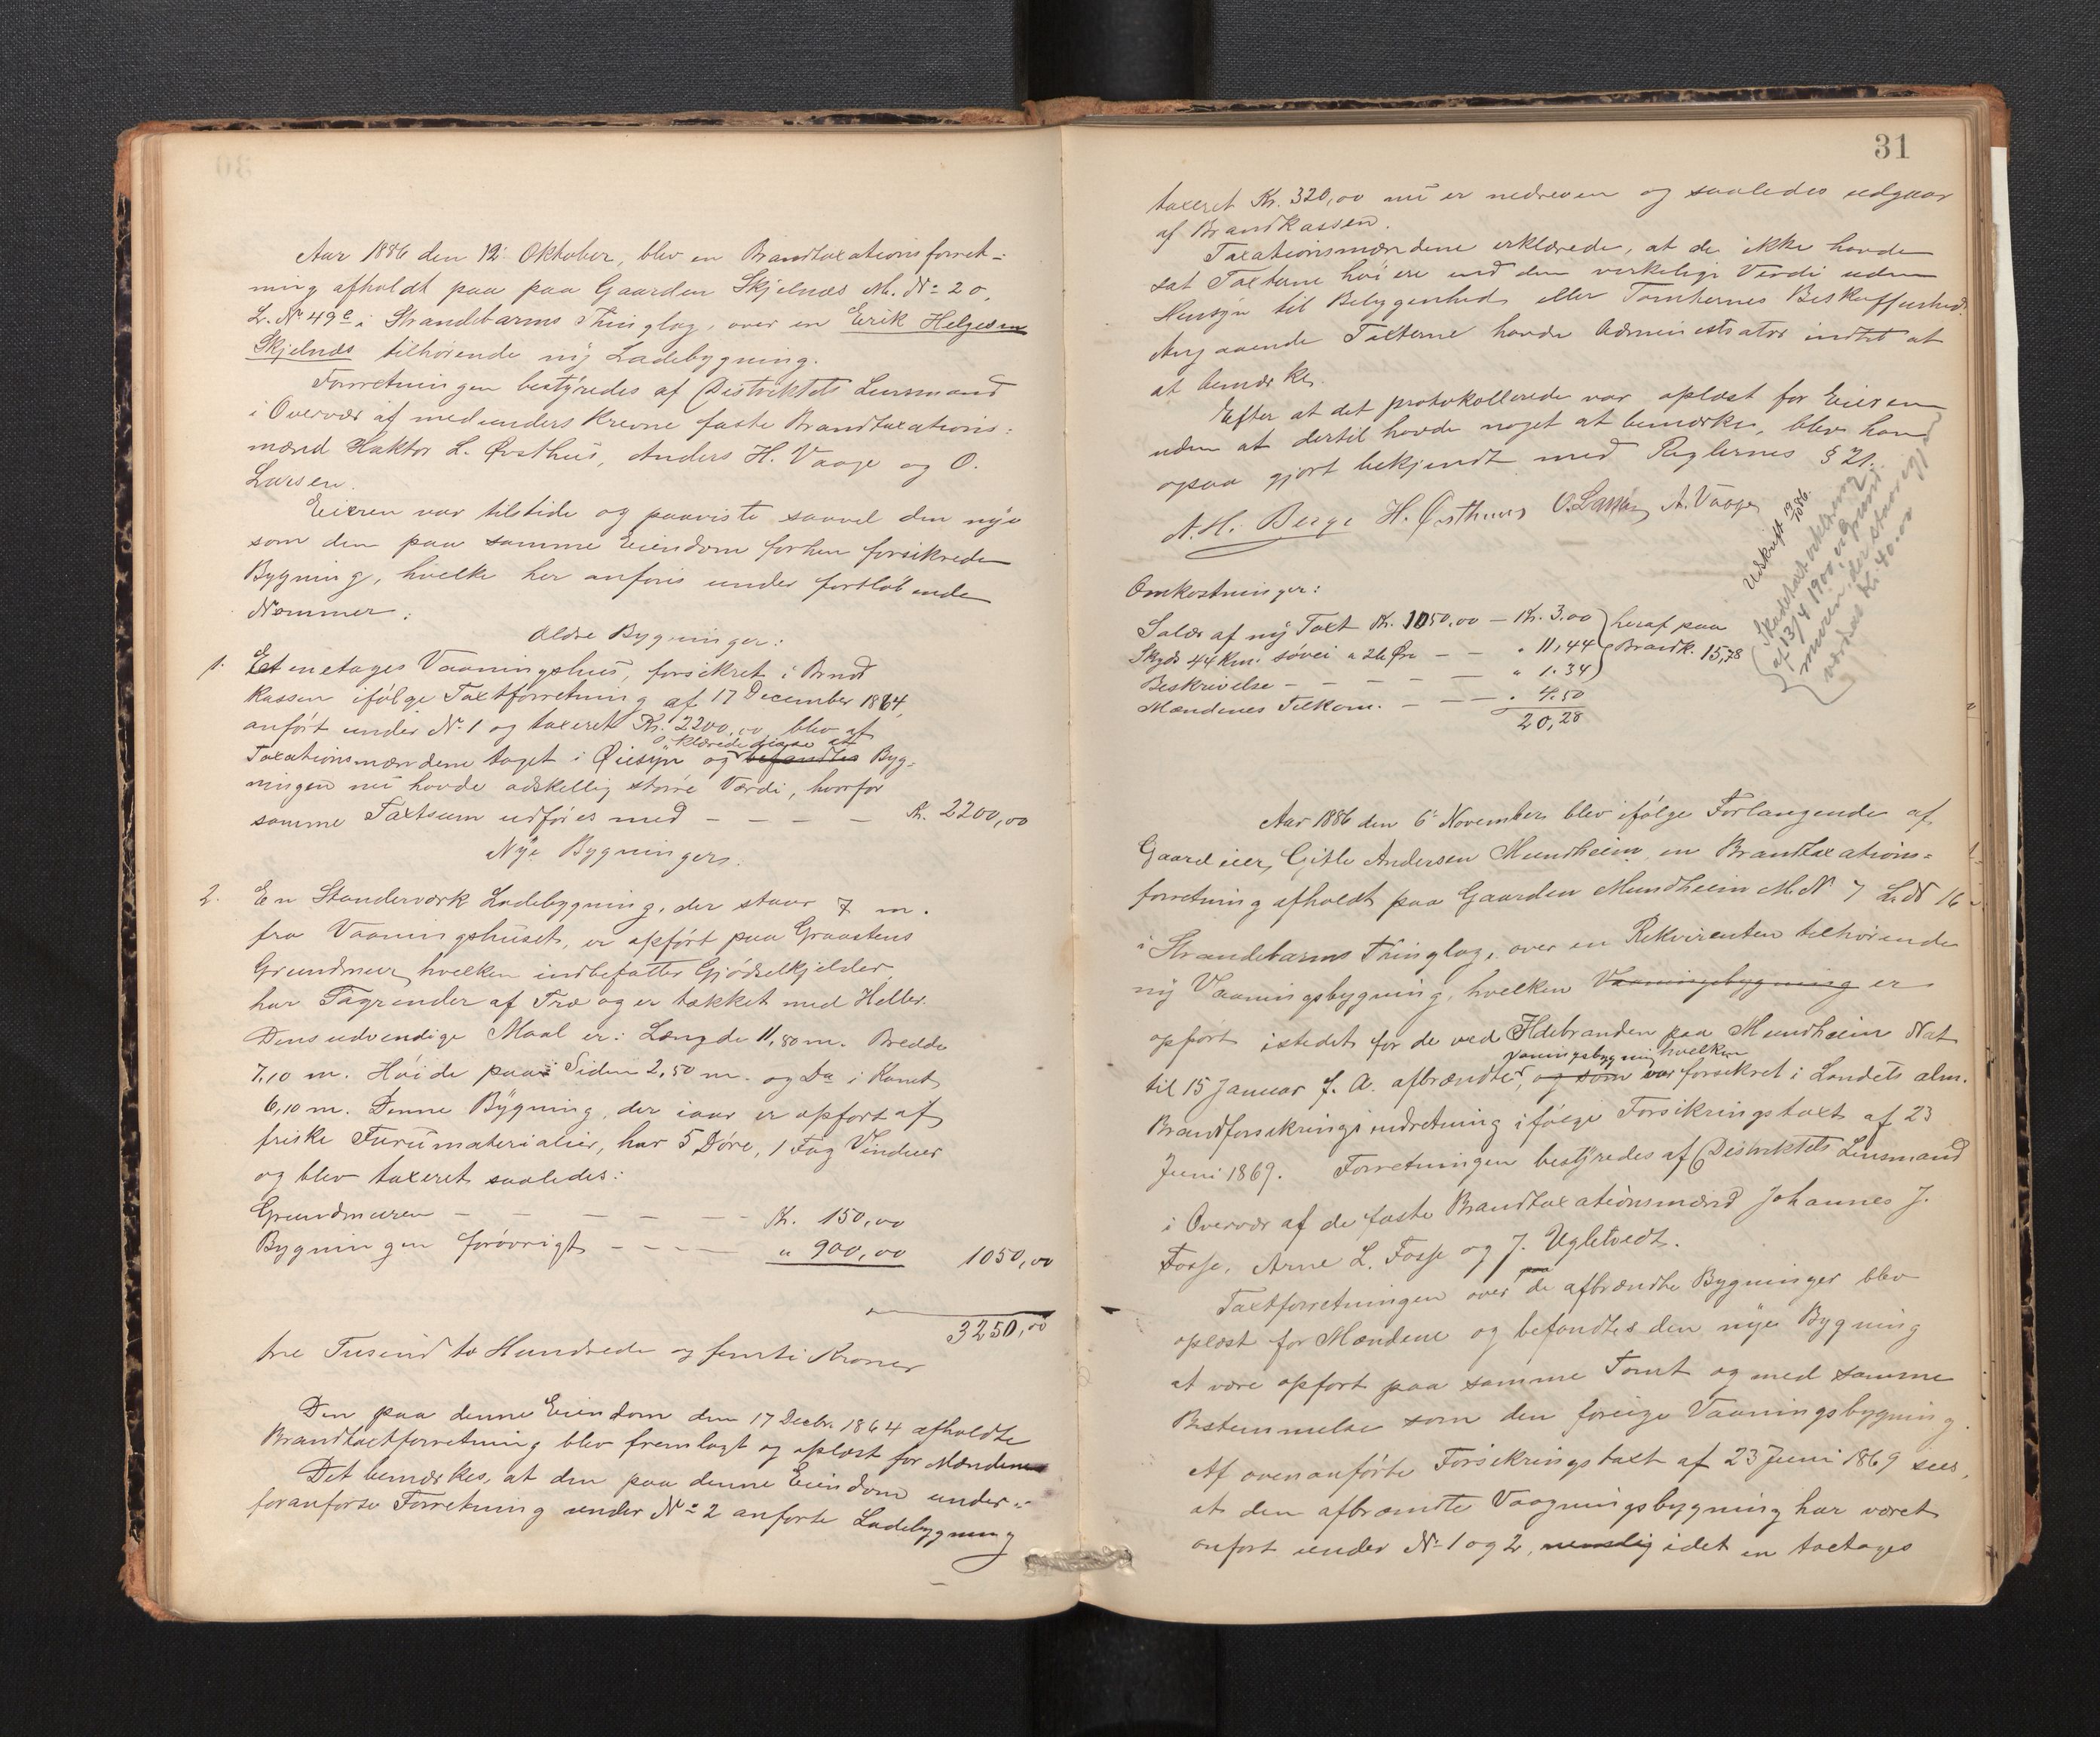 Aar 1886 den 12' Oktober, blev en Brandtaxationsforret-
ning afholdt paa paa Gaarden Skjelnæs M. No 20,
L. No 49c i Strandebarms Thinglag, over en Erik Helgesen
Skjelnæs tilhørende ny Ladebygning.
Forretningen bestyredes af Distriktets Lensmand
i Overvær af medunderskrevne faste Brandtaxations-
mænd Haktor L. Øvsthus, Anders H. Vaage og O.
Larsen.
Eieren var tilstede og paaviste saavel den nye
som den paa samme Eiendom forhen forsikrede
Bygning, hvilke her anføres under fortløbende
Nommer:
Ældre Bygninger:
1. Et enetages Vaaningshus, forsikret i Brand
kassen ifølge Taxtforretning af 17 December 1864,
anført under No 1 og taxeret Kr. 2200,00, blev af
Taxationsmændene taget i Øiesyn og befandtes Byg-
erklærede disse at
ningen nu havde adskellig større Værdi, hvorfor
samme Taxtsum udføres med — — — — Kr. 2200,00
Nye Bygninger.
2. En Standerværk Ladebygning, der staar 7 m.
fra Vaaningshuset, er opført paa Graastens
Grundmur, hvilken indbefatter Gjødselkjelder,
har Tagrender af Træ og er tækket med Heller.
Dens udvendige Maal er: Længde 11,80 m. Bredde
7,10 m. Høide paa Siden 2,50 m. og Do i Kanet
6,10 m. Denne Bygning, der iaar er opført af
friske Furumaterialier, har 5 Døre, 1 Fag Vinduer
og blev taxeret saaledes:
Grundmuren — — — — — Kr. 150,00
Bygningen forøvrigt — — — " 900,00 1050,00
3250,00
tre Tusind to Hundrede og femti Kroner
Den paa denne Eiendom den 17 Decbr. 1864 afholdte
Brandtaxtforretning blev fremlagt og oplæst for Mændene
Det bemærkes, at den paa denne Eiendom under
foranførte Forretning under No 2 anførte Ladebygning
31
taxeret Kr. 320,00 nu er nedreven og saaledes udgaar
af Brandkassen.
Taxationsmændene erklærede, at de ikke havde
sat Taxterne høiere end den verkelige Verdi uden
Hensyn til Bebyggenhed eller Tomternes Beskaffenhed.
Angaaende Taxterne havde Administrator indtet at
at bemærke.
Efter at det protokollerede var oplæst for Eieren
uden at dertil havde noget at bemærke, blev han
ogsaa gjort bekjendt med Reglernes § 21.
A. H. Berge H. Øvsthus O. Larsen A. Vaage
Udskrift 19/10 86.
Skadetaxt
af 13/4 1900, Grund
muren der staar igj
værdsat Kr. 40.00
Omkostninger:
Salær af ny Taxt Kr. 1050,00 — Kr. 3.00 } heraf paa
Skyds 44 km. søvei a 26 Øre — — " 11,44 } Brandk. 15,78
Beskrivelse — — — — — " 1.34 }
Mændenes Tilkom. — — — " 4.50
20,28
Aar 1886 den 6' November blev ifølge Forlangende af
Gaardeier, Gitle Andersen Mundheim en Brandtaxations-
forretning afholdt paa Gaarden Mundheim M.N 7 L.N 16
i Strandebarms Thinglag, over en Rekvirenten tilhørende
ny Vaaningsbygning, hvilken Vaaningsbygning er
opført istedet for de ved Ildebranden paa Mundheim Nat
Vaningsbygning hvilken
til 15 Januar f. A. afbrændte, og som var forsikret i Landets alm.
Brandforsikringsindretning ifølge Forsikringstaxt af 23
Juni 1869. Forretningen bestyredes af Distriktets Lensmand
i Overvær af de faste Brandtaxationsmænd Johannes J.
Fosse, Arne L. Fosse og J. Ugletvedt.
Taxtforretningen over de afbrændte Bygninger blev
oplæst for Mændene og befandtes den nye Bygning
at være opført paa samme Tomt og med samme
Bestemmelse som den forrige Vaaningsbygning.
Af ovenanførte Forsikringstaxt af 23 Juni 1869 sees,
at den afbrændte Vaagningsbygning har været
anført under No 1 og 2, nemlig idet en toetages